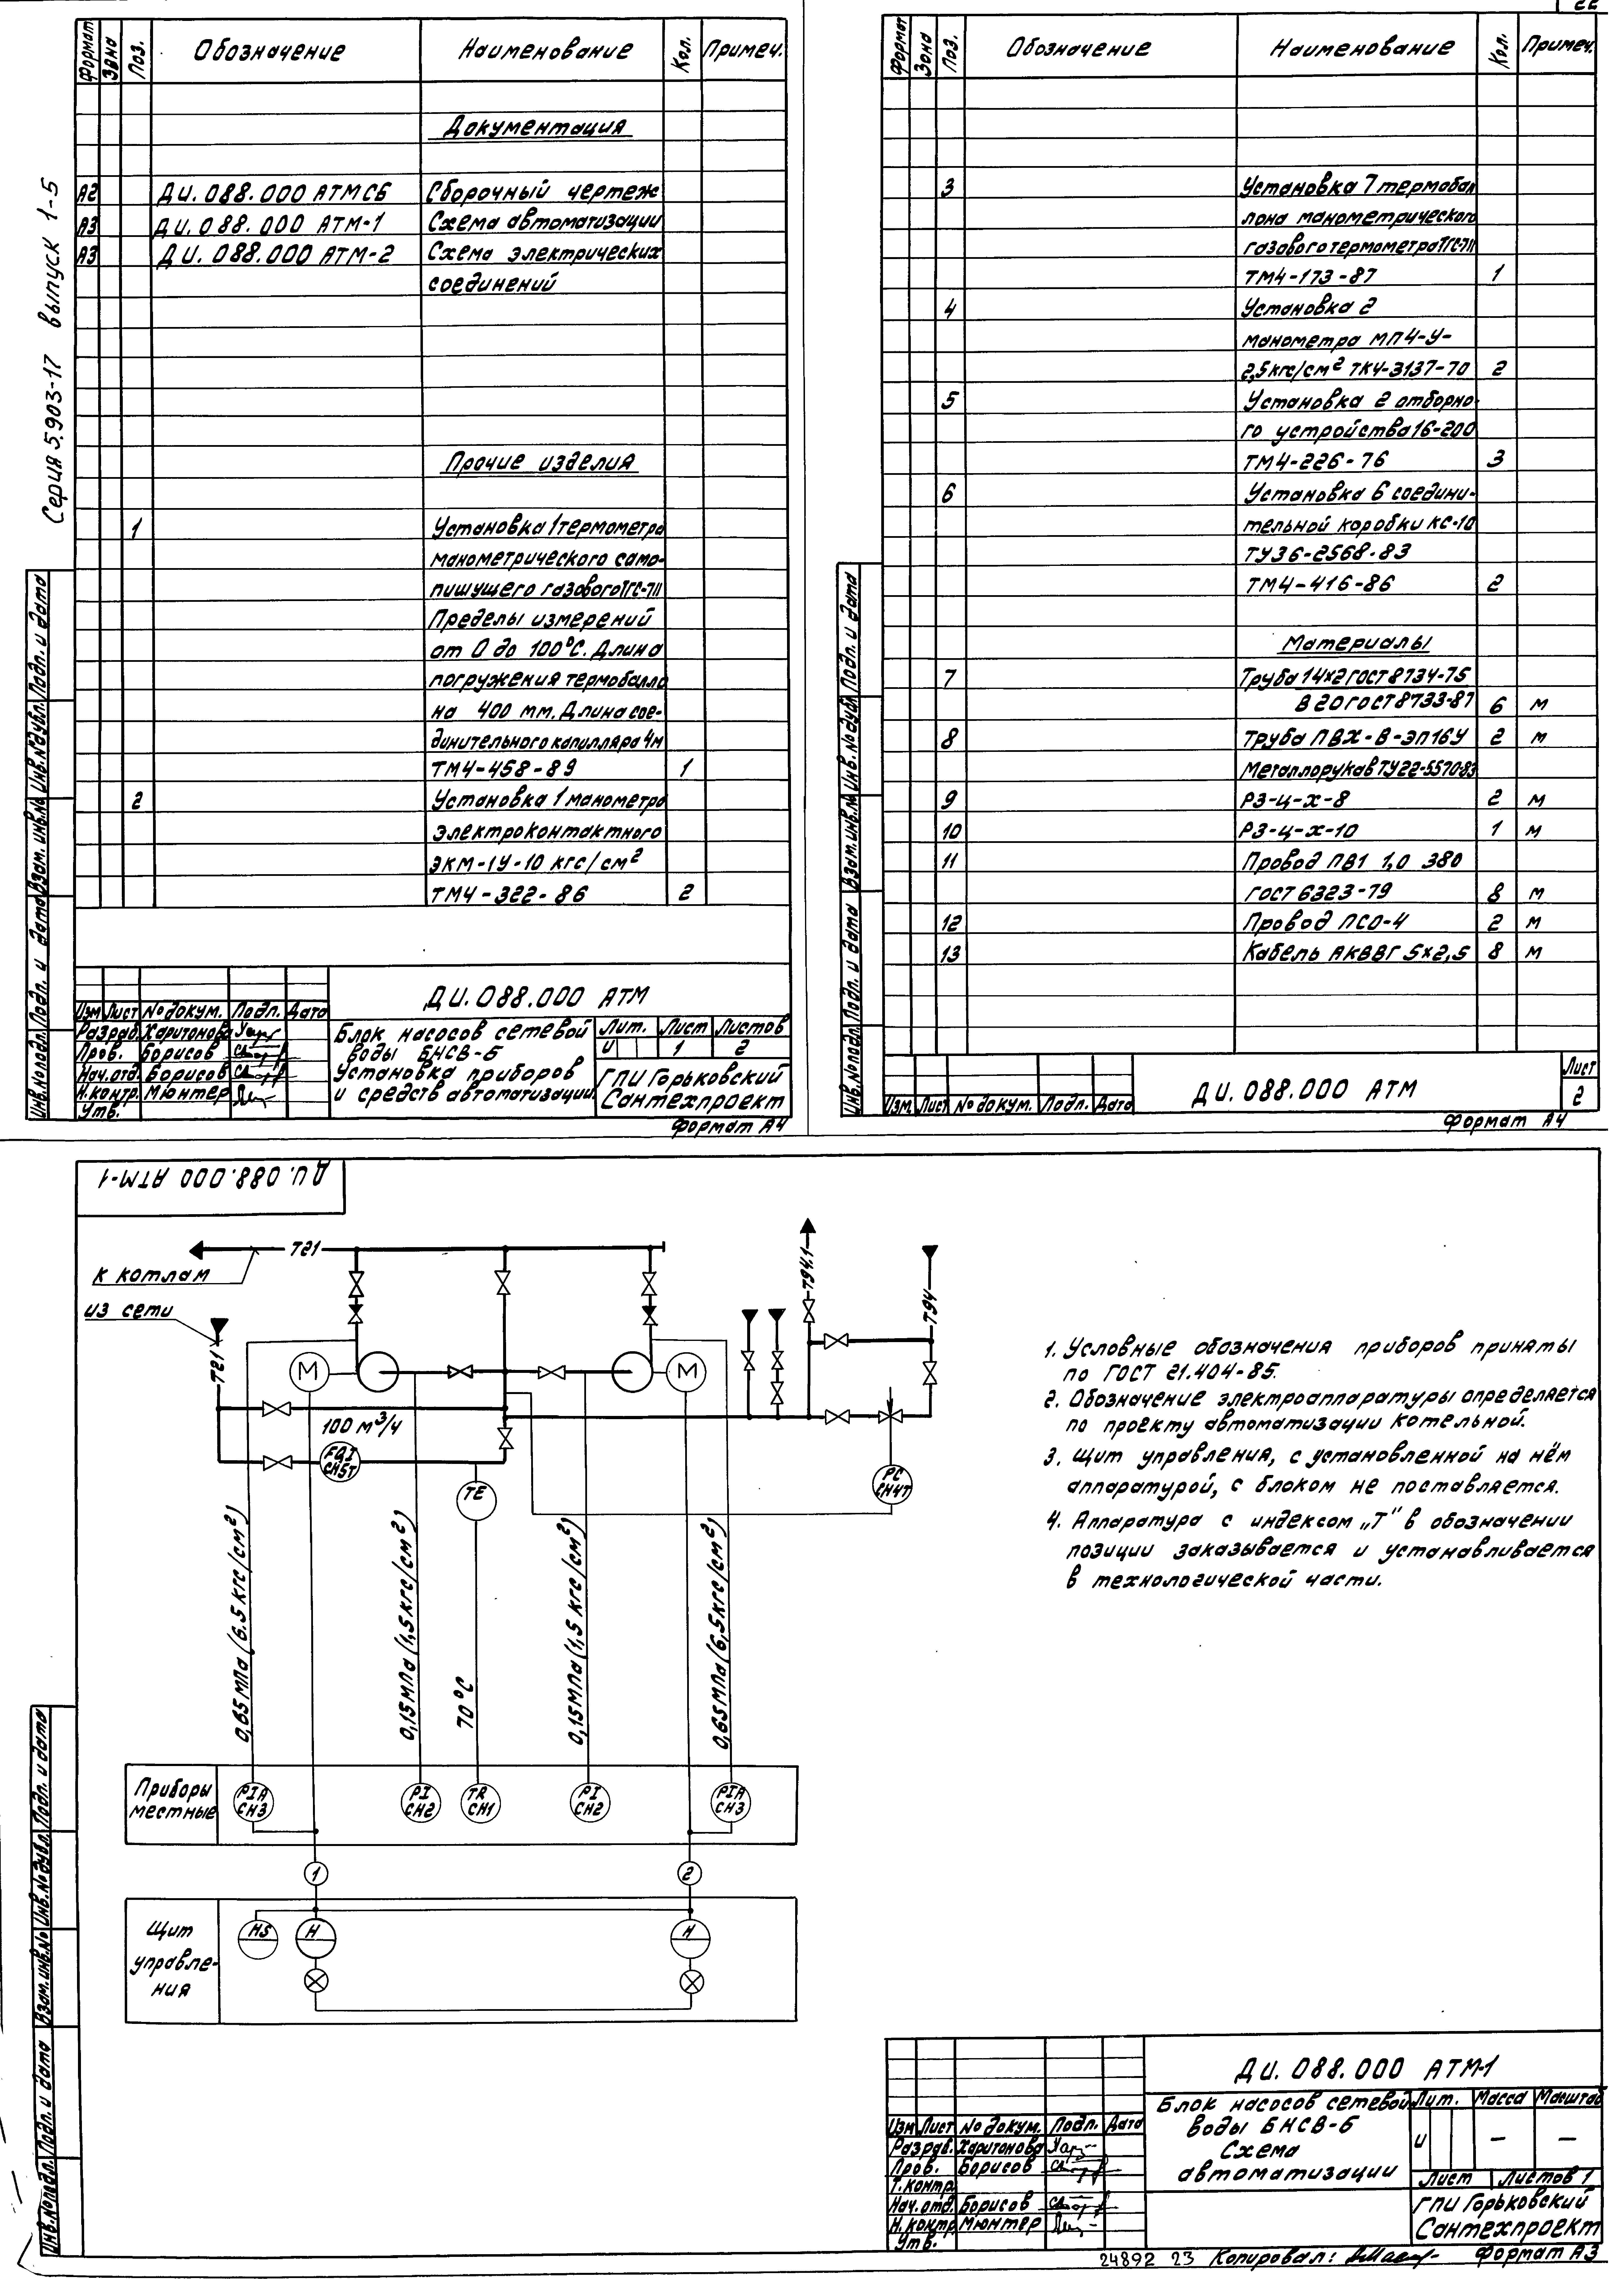 22
Серия 5.903-17 выпуск 1-5
Формат Зона Поз. Обозначение Наименование Кол. Примеч.
Документация
А2 ДИ.088.000 АТМСБ Сборочный чертеж
А3 ДИ.088.000 АТМ-1 Схема автоматизации
А3 ДИ.088.000 АТМ-2 Схема электрических
соединений
Прочие изделия
1 Установка 1 термометра
манометрического само-
пишущего газового ТГС-711
Пределы измерений
от 0 до 100°С. Длина
погружения термобалло
на 400 мм. Длина сое-
динительного капилляра 4м
ТМ4-458-89 1
2 Установка 1 манометра
электроконтактного
ЭКМ-1У-10 кгс/см²
ТМ4-322-86 2
Инв.№подл. Подп. и дата Взам.инв.№ Инв.№дубл. Подп. и дата
ДИ.088.000 АТМ
Изм Лист № докум. Подп. Дата
Разраб. Харитонова
Пров. Борисов
Нач.отд. Борисов
Н.контр. Мюнтер
Утв.
Блок насосов сетевой
воды БНСВ-Б
Установка приборов
и средств автоматизации
Лит. Лист Листов
И 1 2
ГПИ Горьковский
Сантехпроект
Формат А4
Формат Зона Поз. Обозначение Наименование Кол. Примеч.
3 Установка 7 термобал
лона манометрического
газового термометра ТГС-711
ТМ4-173-87 1
4 Установка 2
манометра МП4-У-
2,5кгс/см² ТК4-3137-70 2
5 Установка 2 отборно-
го устройства 16-200
ТМ4-226-76 3
6 Установка 6 соедини-
тельной коробки КС-10
ТУ36-2568-83
ТМ4-416-86 2
Материалы
7 Труба 14х2 ГОСТ 8734-75
В 20 ГОСТ 8733-87 6 м
8 Труба ПВХ-В-ЭП16У 2 м
Металлорукав ТУ22-5570-83
9 РЗ-Ц-Х-8 2 м
10 РЗ-Ц-Х-10 1 м
11 Провод ПВ1 1,0 380
ГОСТ 6323-79 8 м
12 Провод ПСО-4 2 м
13 Кабель АКВВГ 5х2,5 8 м
Инв.№подл. Подп. и дата Взам.инв.№ Инв.№дубл. Подп. и дата
Изм. Лист № докум. Подп. Дата
ДИ.088.000 АТМ
Лист
2
Формат А4
ДИ.088.000 АТМ-1
Т21
К котлам
из сети
Т21
Т94.1
Т94
М
М
100 м³/ч
FQI
СН5Т
ТЕ
РС
СН4Т
0,65МПа (6.5 кгс/см²)
0,15МПа (1,5кгс/см²)
70°С
0,15МПа (1,5 кгс/см²)
0,65МПа (6,5кгс/см²)
Приборы
местные
PIA
СН3
PI
СН2
TR
СН1
PI
СН2
PIA
СН3
1
2
Щит
управле-
ния
HS
H
H
1. Условные обозначения приборов приняты
по ГОСТ 21.404-85.
2. Обозначение электроаппаратуры определяется
по проекту автоматизации котельной.
3. Щит управления, с установленной на нём
аппаратурой, с блоком не поставляется.
4. Аппаратура с индексом „Т" в обозначении
позиции заказывается и устанавливается
в технологической части.
Инв.№подл. Подп. и дата Взам.инв.№ Инв.№дубл. Подп. и дата
ДИ.088.000 АТМ-1
Изм Лист № докум. Подп. Дата
Разраб. Харитонова
Пров. Борисов
Т.контр.
Нач.отд. Борисов
Н.контр Мюнтер
Утв.
Блок насосов сетевой
воды БНСВ-Б
Схема
автоматизации
Лит. Масса Масштаб
И — —
Лист Листов 1
ГПИ Горьковский
Сантехпроект
24892 23 Копировал: Формат А3